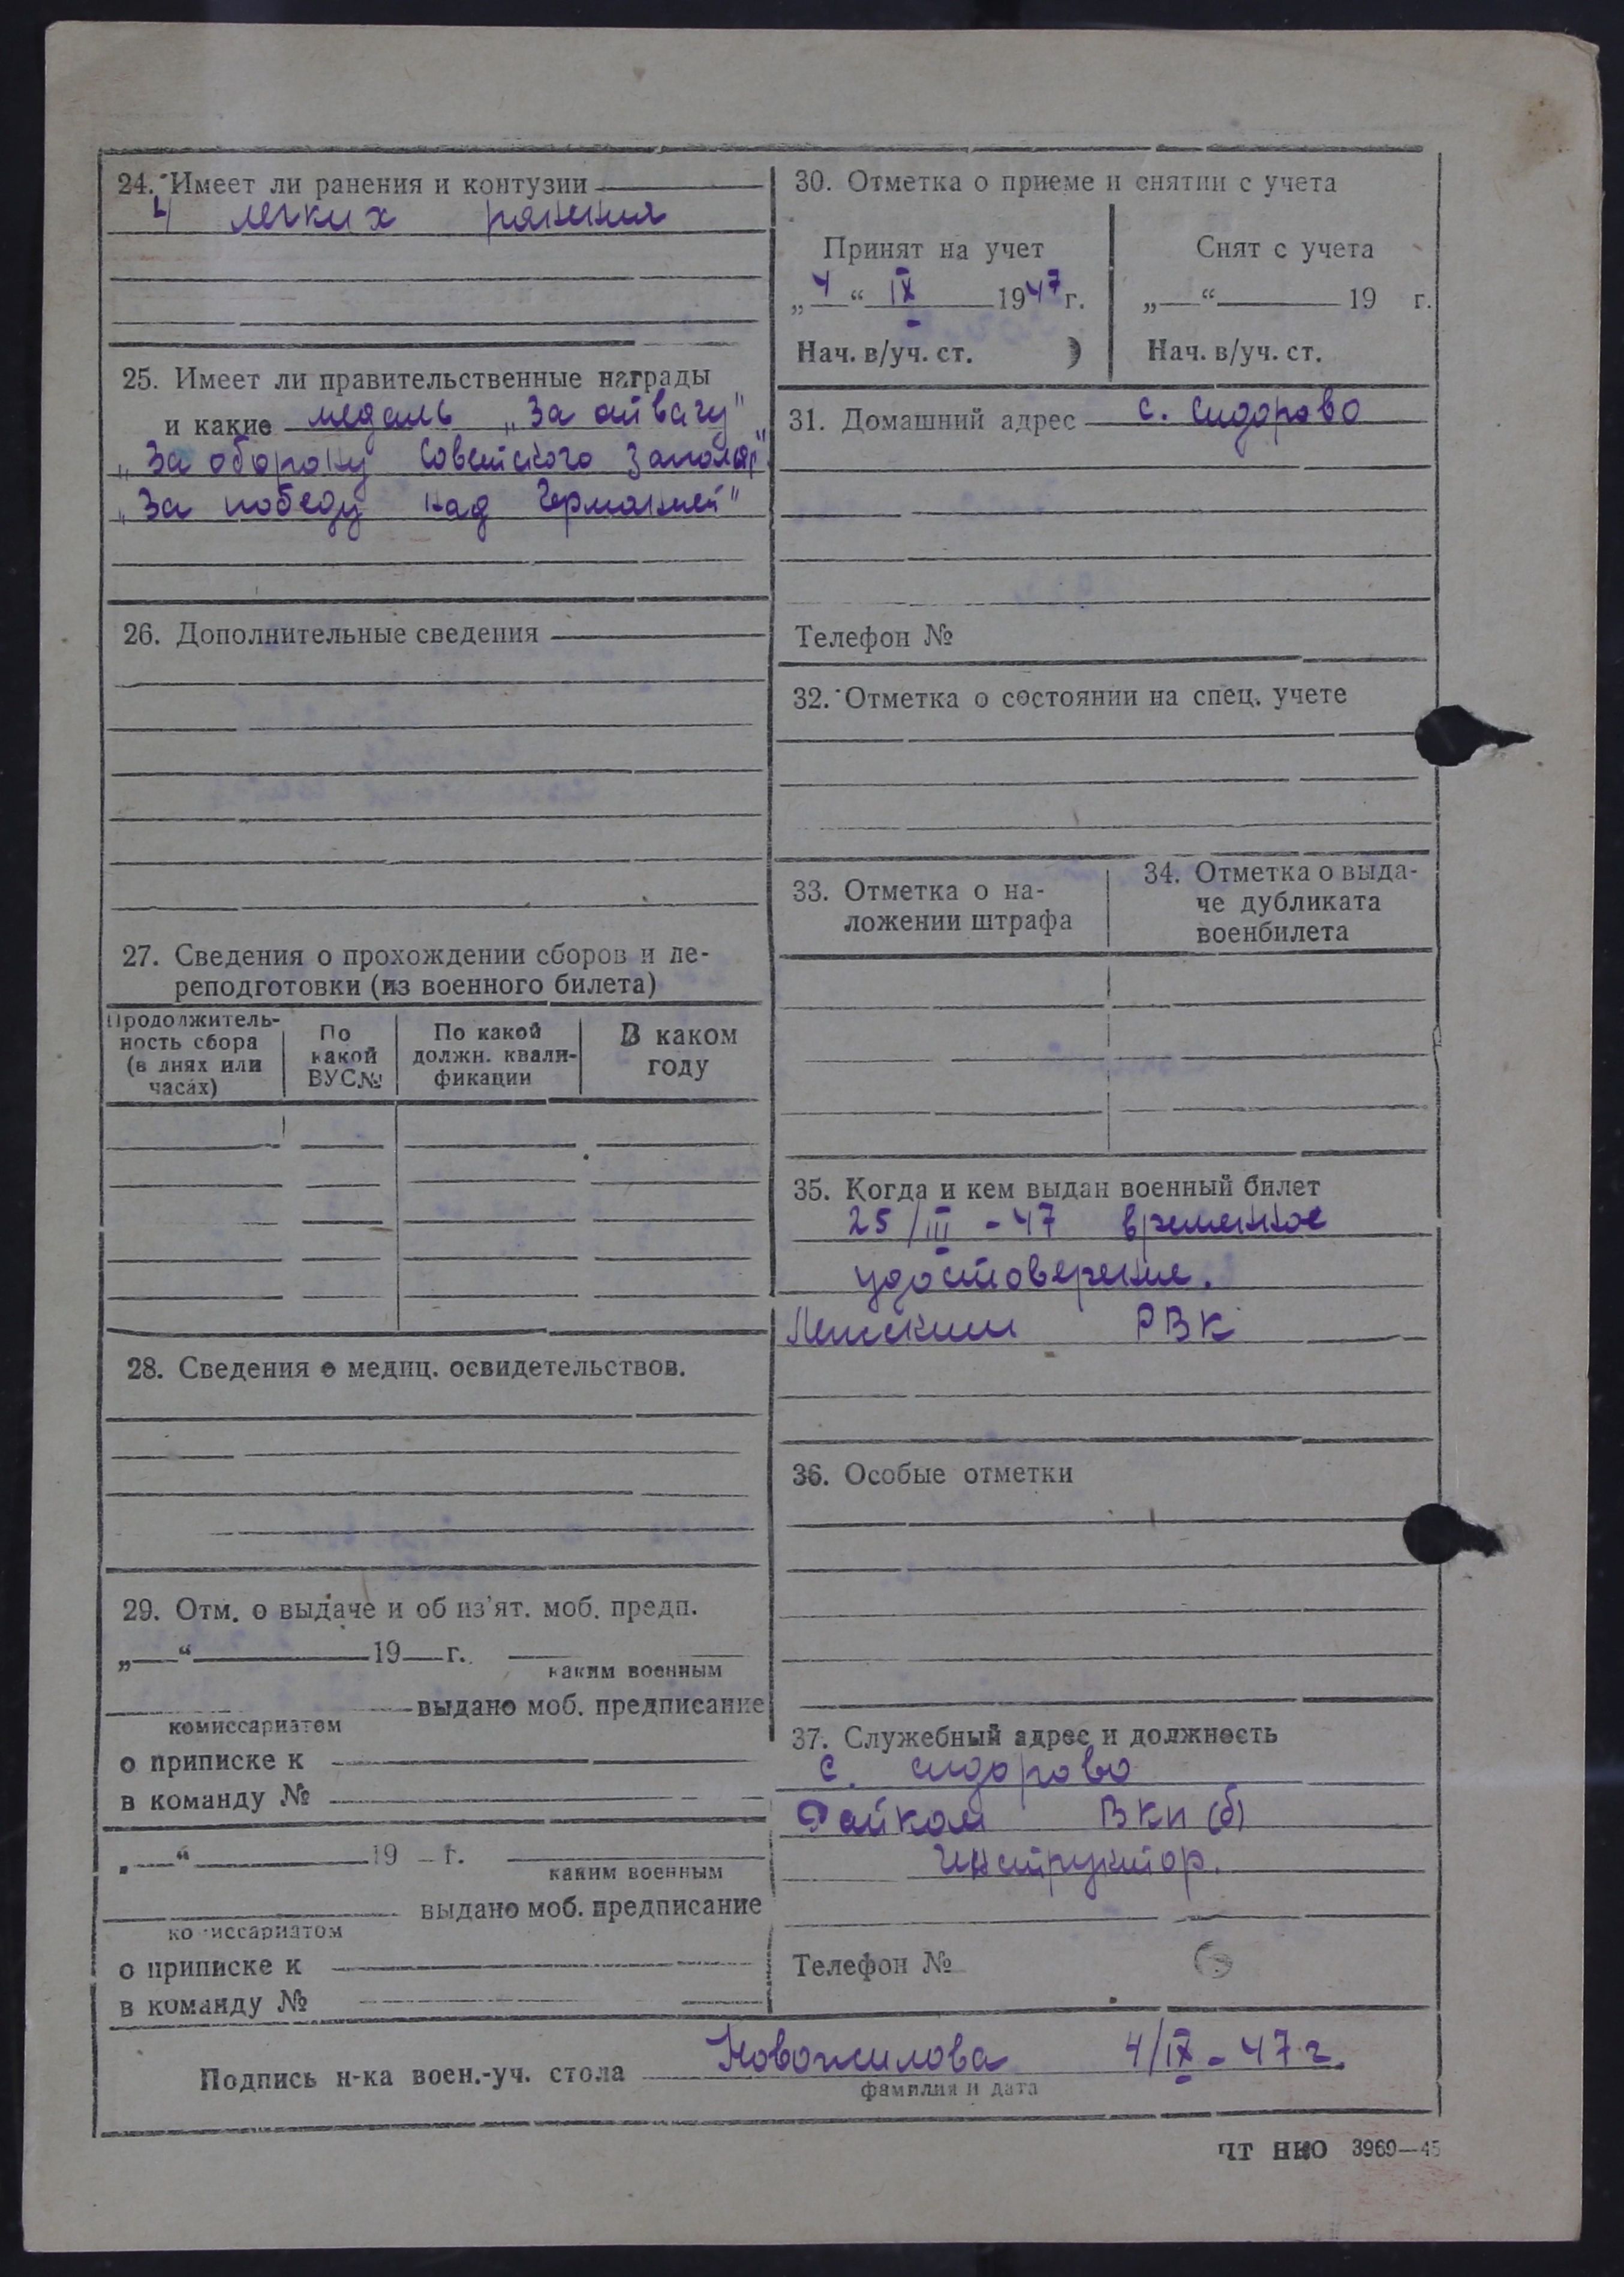 24. Имеет ли ранения и контузии
4 легких ранения
25. Имеет ли правительственные награды
и какие медаль „За отвагу"
„За оборону Советского Заполяр"
„За победу над Германией"
26. Дополнительные сведения
27. Сведения о прохождении сборов и пе-
реподготовки (из военного билета)
Продолжитель-
ность сбора
(в днях или
часах)
По
какой
ВУС№
По какой
должн. квали-
фикации
В каком
году
28. Сведения о медиц. освидетельствов.
29. Отм. о выдаче и об из'ят. моб. предп.
„ “ 19 г.
каким военным
выдано моб. предписание
комиссариатом
о приписке к
в команду №
„ “ 19 г.
каким военным
выдано моб. предписание
комиссариатом
о приписке к
в команду №
30. Отметка о приеме и снятии с учета
Принят на учет
„4“ IX 1947 г.
Нач. в/уч. ст. )
Снят с учета
„ “ 19 г.
Нач. в/уч. ст.
31. Домашний адрес с. Сидорово
Телефон №
32. Отметка о состоянии на спец. учете
33. Отметка о на-
ложении штрафа
34. Отметка о выда-
че дубликата
военбилета
35. Когда и кем выдан военный билет
25/III - 47 временное
удостоверение.
РВК
36. Особые отметки
37. Служебный адрес и должность
с. Сидорово
Райком ВКП(б)
Инструктор.
Телефон №
Подпись н-ка воен.-уч. стола Новожилова 4/IX - 47 г.
фамилия и дата
ЧТ НКО 3969—45